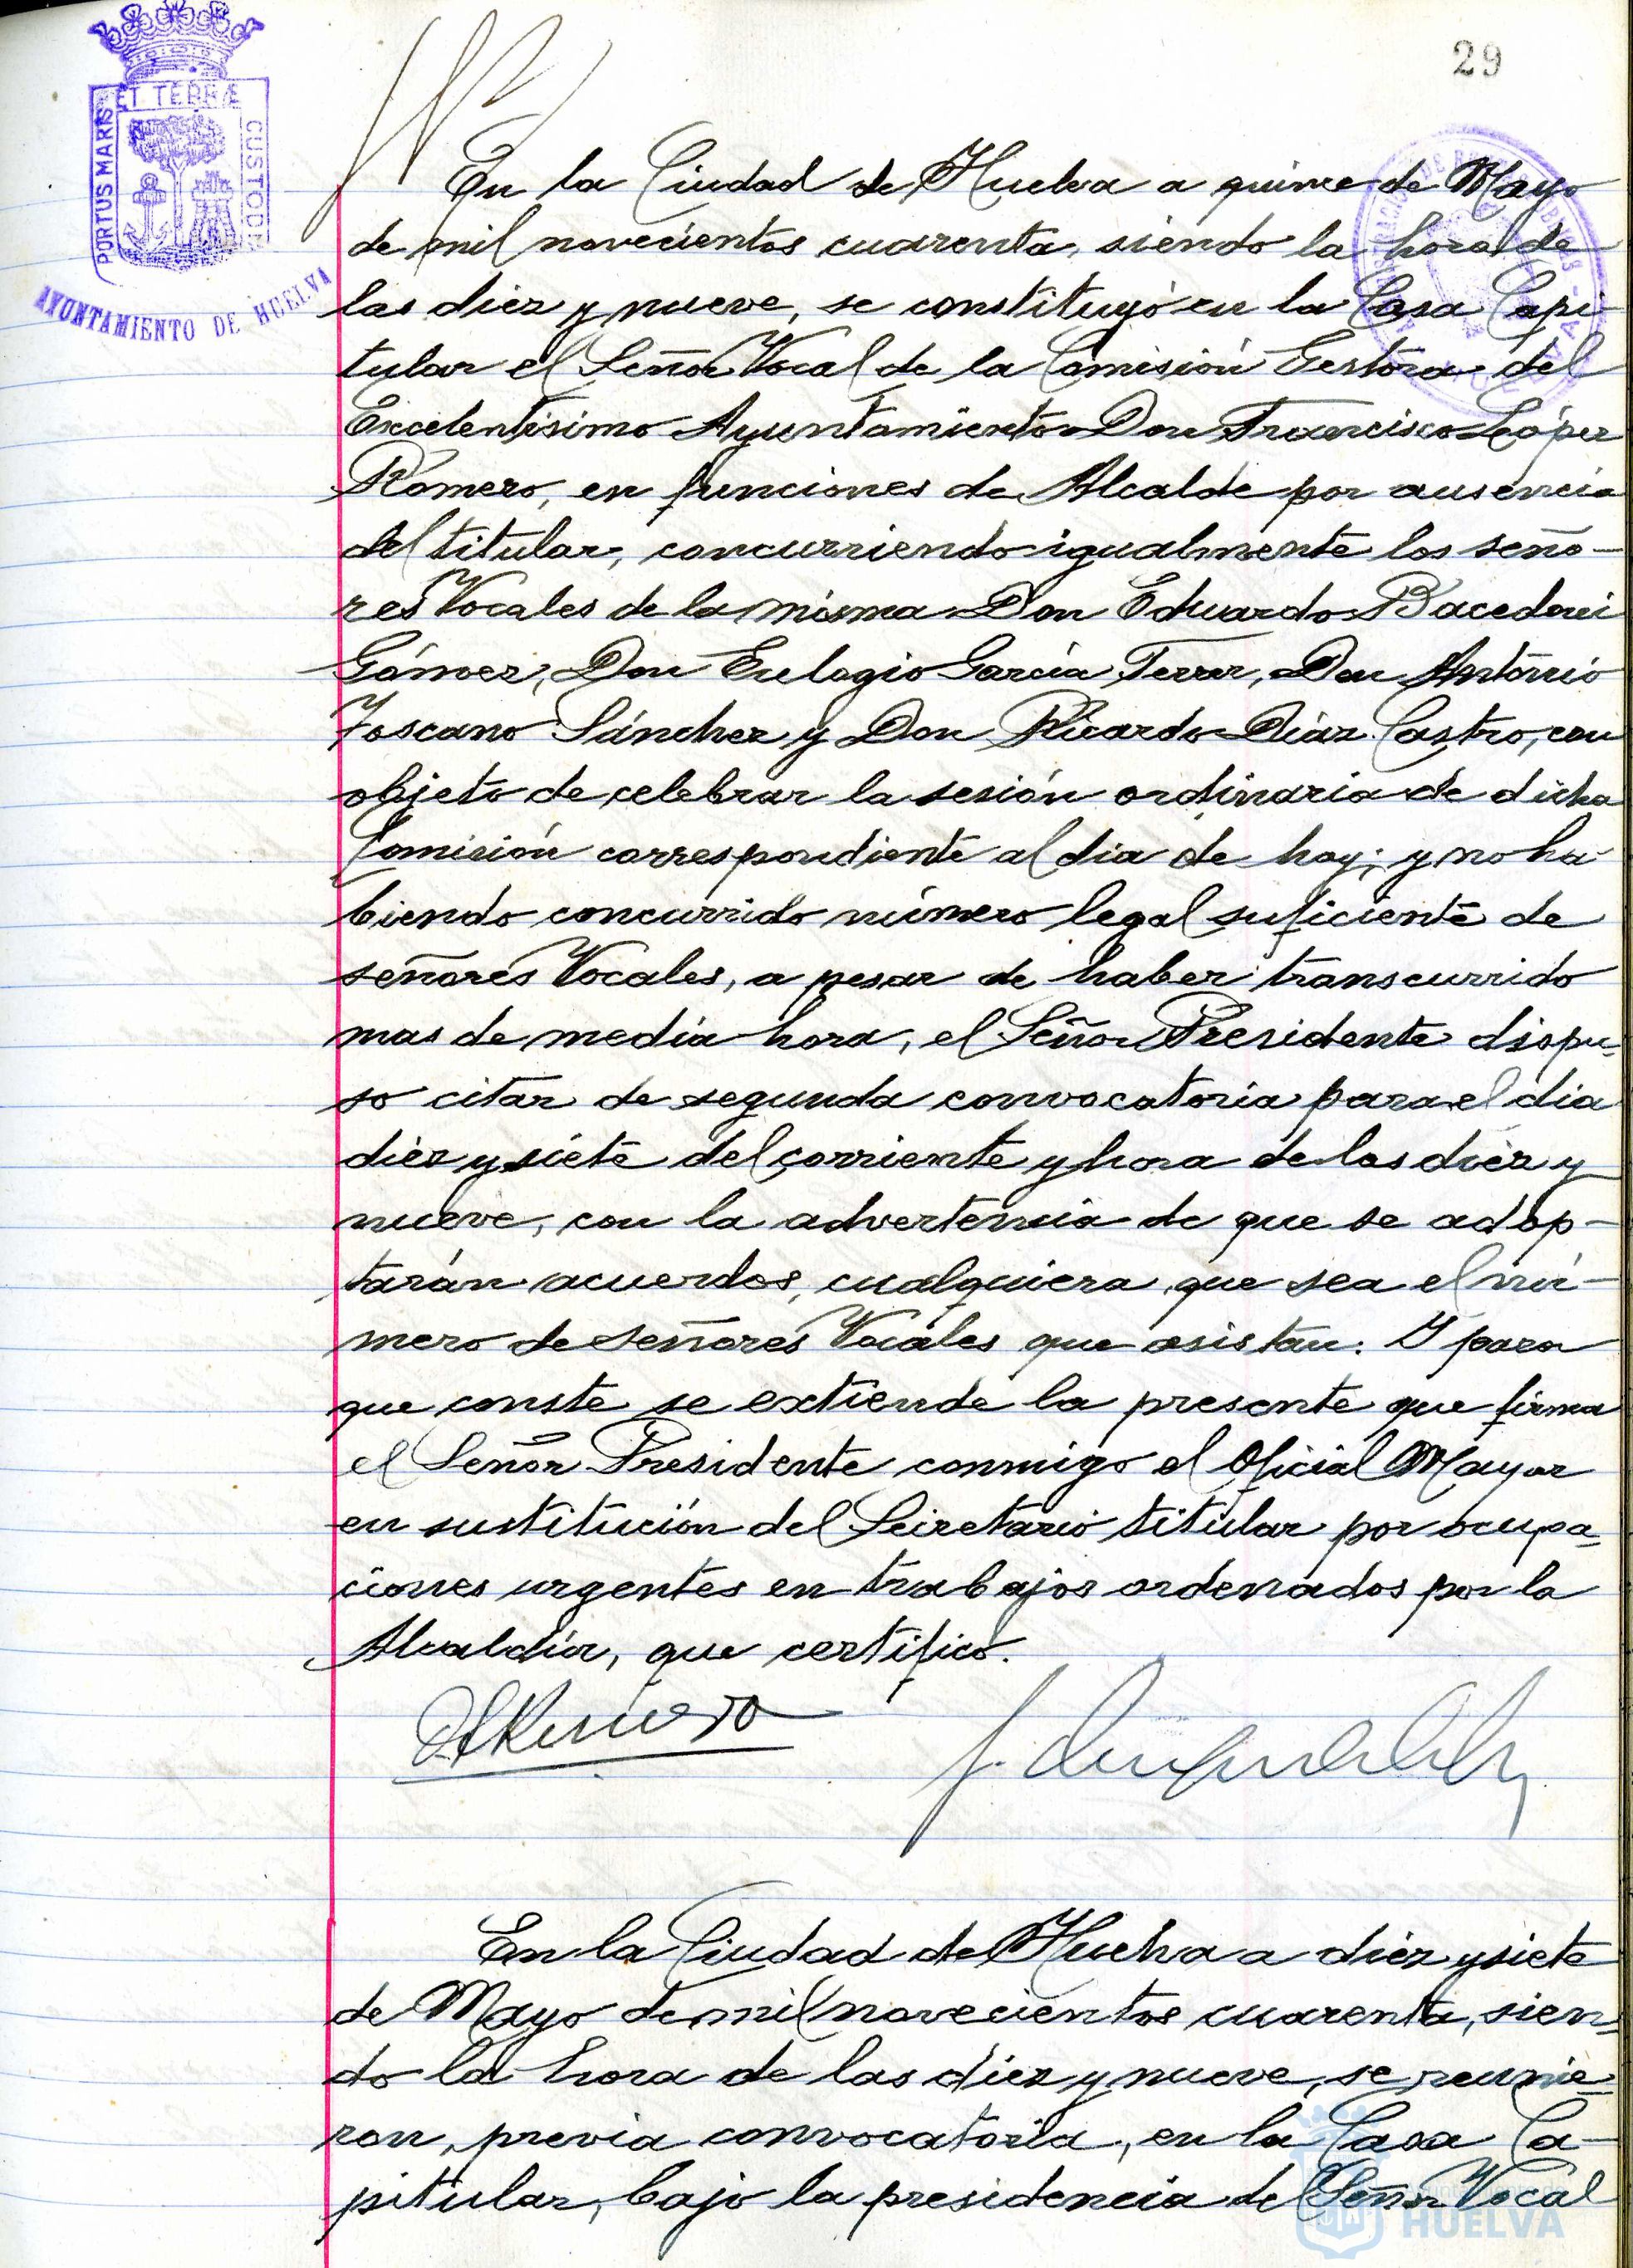 29
PORTUS MARIS ET TERRÆ CUSTODIA
AYUNTAMIENTO DE HUELVA
En la Ciudad de Huelva a quince de Mayo
de mil novecientos cuarenta, siendo la hora de
las diez y nueve, se constituyó en la Casa Capi-
tular el Señor Vocal de la Comisión Gestora del
Excelentísimo Ayuntamiento Don Francisco López
Romero, en funciones de Alcalde por ausencia
del titular, concurriendo igualmente los seño-
res Vocales de la misma Don Eduardo
Gómez, Don Eulogio García, Don Antonio
Toscano Sánchez y Don Ricardo Díaz Castro, con
objeto de celebrar la sesión ordinaria de dicha
Comisión correspondiente al dia de hoy; y no ha-
biendo concurrido número legal suficiente de
señores Vocales, a pesar de haber transcurrido
mas de media hora, el Señor Presidente dispu-
so citar de segunda convocatoria para el dia
diez y siete del corriente y hora de las diez y
nueve, con la advertencia de que se adop-
tarán acuerdos, cualquiera que sea el nú-
mero de señores Vocales que asistan. Y para
que conste se extiende la presente que firma
el Señor Presidente conmigo el Oficial Mayor
en sustitución del Secretario titular por ocupa-
ciones urgentes en trabajos ordenados por la
Alcaldía, que certifico.
En la Ciudad de Huelva a diez y siete
de Mayo de mil novecientos cuarenta, sien-
do la hora de las diez y nueve, se reunie-
ron, previa convocatoria, en la Casa Ca-
pitular, bajo la presidencia del Señor Vocal
HUELVA